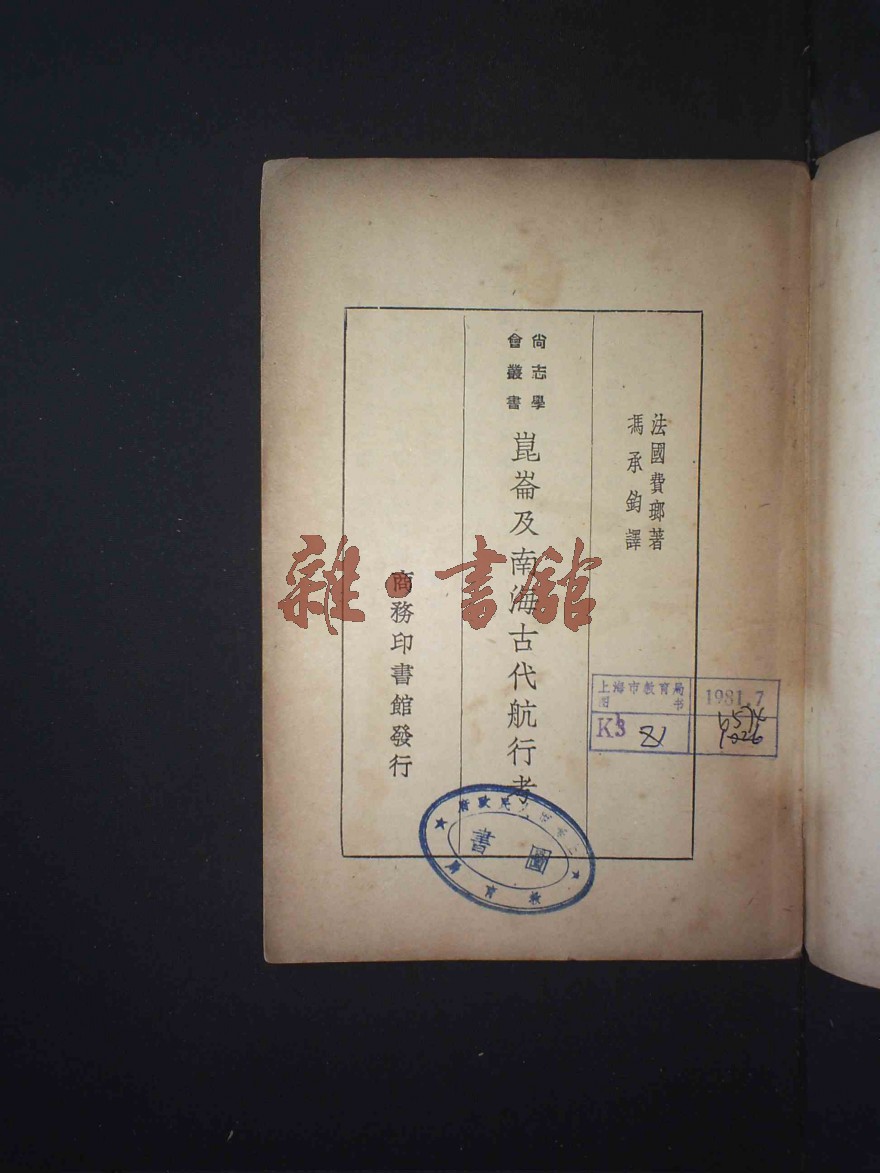 法國費瑯著
馮承鈞譯
尚志學
會叢書
崑崙及南海古代航行考
商務印書館發行
雜·書館
上海市教育局
图书
1981.7
K3
81
圖書